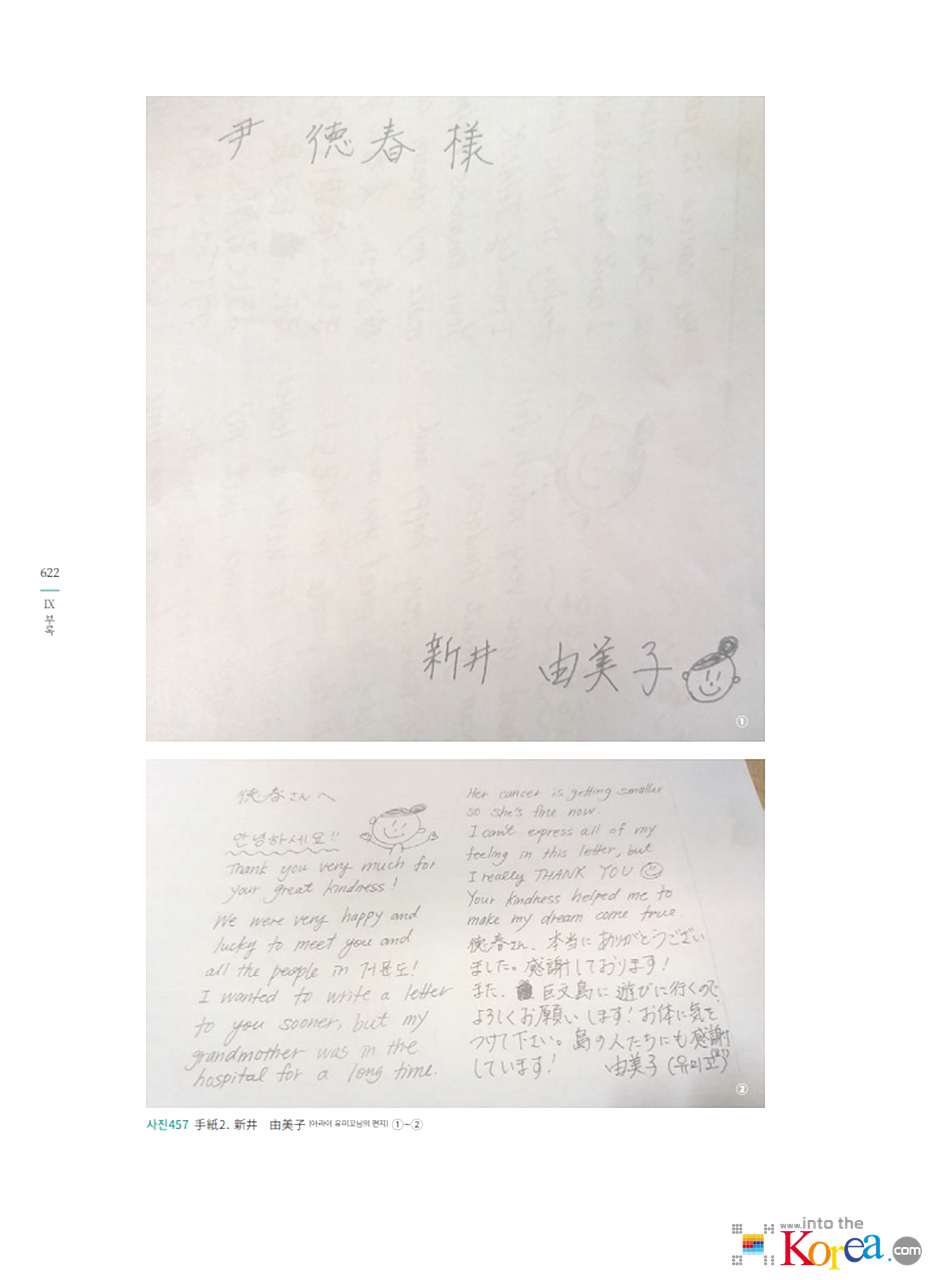 尹 徳春 様
新井 由美子
①
622
IX
부록
徳春さんへ
안녕하세요!!
Thank you very much for
your great kindness!
We were very happy and
lucky to meet you and
all the people in 거문도!
I wanted to write a letter
to you sooner, but my
grandmother was in the
hospital for a long time.
Her cancer is getting smaller
so she's fine now.
I can't express all of my
feeling in this letter, but
I really THANK YOU
Your kindness helped me to
make my dream come true.
徳春さん、本当にありがとうござい
ました。感謝しております!
また、巨文島に遊びに行くので
よろしくお願いします!お体に気を
つけて下さい。島の人たちにも感謝
しています! 由美子(유미꼬)
②
사진457 手紙2. 新井 由美子 (아라이 유미꼬님의 편지) ①~②
www.into the
Korea.com